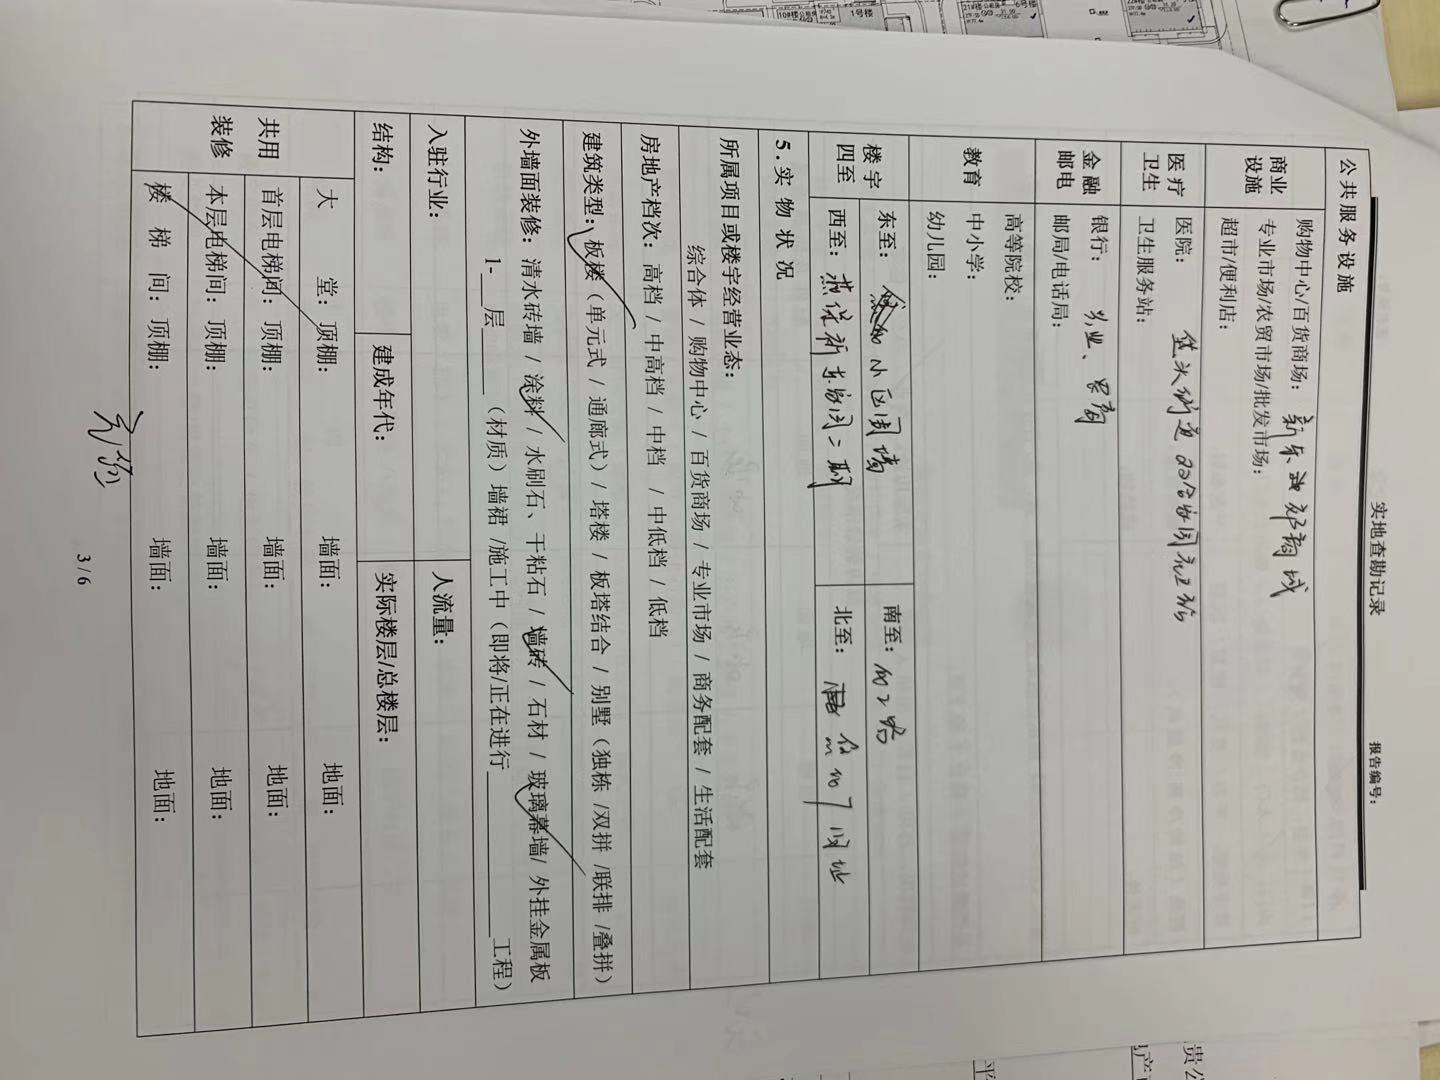 实地查勘记录
报告编号：
公共服务设施
商业设施
购物中心/百货商场：
专业市场/农贸市场/批发市场：
超市/便利店：
医疗卫生
医院：
卫生服务站：
金融邮电
银行：兴业、农商
邮局/电话局：
教育
高等院校：
中小学：
幼儿园：
楼宇四至
东至：小区围墙
南至：
西至：燕保祈东家园二期
北至：
5.实物状况
所属项目或楼宇经营业态：
综合体 / 购物中心 / 百货商场 / 专业市场 / 商务配套 / 生活配套
房地产档次：高档 / 中高档 / 中档 / 中低档 / 低档
建筑类型：板楼（单元式 / 通廊式）/ 塔楼 / 板塔结合 / 别墅（独栋 /双拼 /联排 /叠拼）
外墙面装修：清水砖墙 / 涂料 / 水刷石、干粘石 / 墙砖 / 石材 / 玻璃幕墙/ 外挂金属板
1-__层______（材质）墙裙 /施工中（即将/正在进行______________工程）
入驻行业：
人流量：
结构：
建成年代：
实际楼层/总楼层：
共用装修
大堂：顶棚： 墙面： 地面：
首层电梯间：顶棚： 墙面： 地面：
本层电梯间：顶棚： 墙面： 地面：
楼梯间：顶棚： 墙面： 地面：
3 / 6
1号楼
6号楼